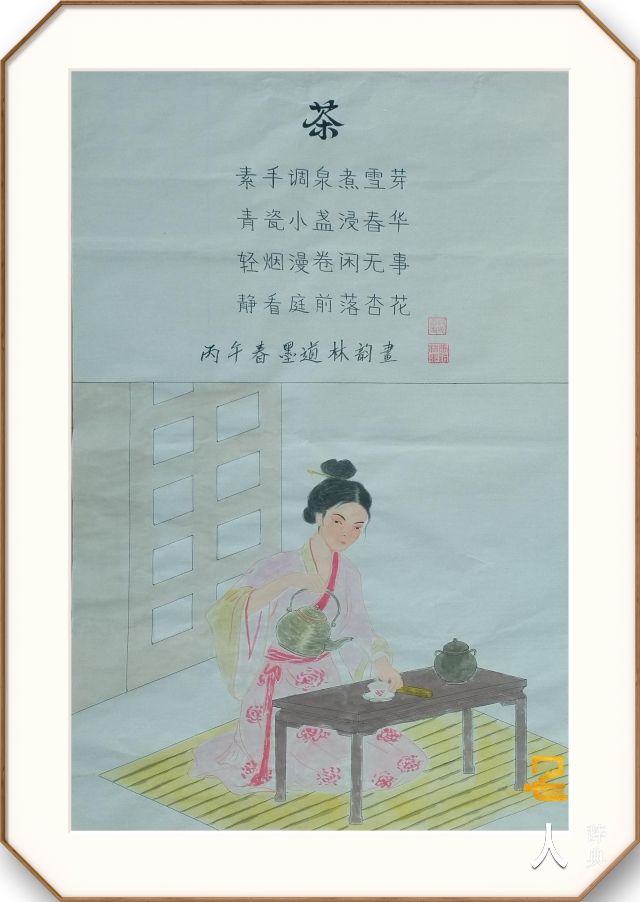 茶
素手调泉煮雪芽
青瓷小盏浸春华
轻烟漫卷闲无事
静看庭前落杏花
丙午春墨道林韵畫
名
人
辞典